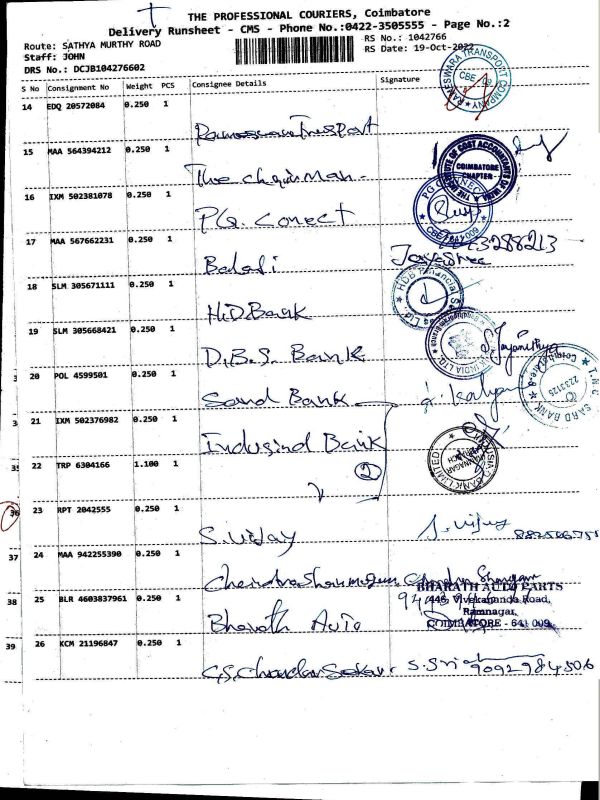 THE PROFESSIONAL COURIERS, Coimbatore
Delivery Runsheet - CMS - Phone No.:0422-3505555 - Page No.:2
Route: SATHYA MURTHY ROAD
RS No.: 1042766
Staff: JOHN
RS Date: 19-Oct-2022
DRS No.: DCJB104276602
S No Consignment No Weight PCS Consignee Details Signature
14 EDQ 20572084 0.250 1
15 MAA 564394212 0.250 1
The Chairman
COIMBATORE CHAPTER
16 IXM 502381078 0.250 1
P.Q. Conect
17 MAA 567662231 0.250 1
Balaji Jayashree
18 SLM 305671111 0.250 1
H.D Bank
19 SLM 305668421 0.250 1
D.B.S. Bank
20 POL 4599501 0.250 1
Sard Bank
21 IXM 502376982 0.250 1
Indusind Bank
22 TRP 6304166 1.100 1
2
23 RPT 2042555 0.250 1
S. Vijay S. Vijay
37 24 MAA 942255390 0.250 1
38 25 BLR 4603837961 0.250 1
Bharath Auto
BHARATH AUTO PARTS
446, Vivekananda Road,
Ramnagar,
COIMBATORE - 641 009.
39 26 KCM 21196847 0.250 1
G.S. Chandar Sekar S. Sri 9092984506